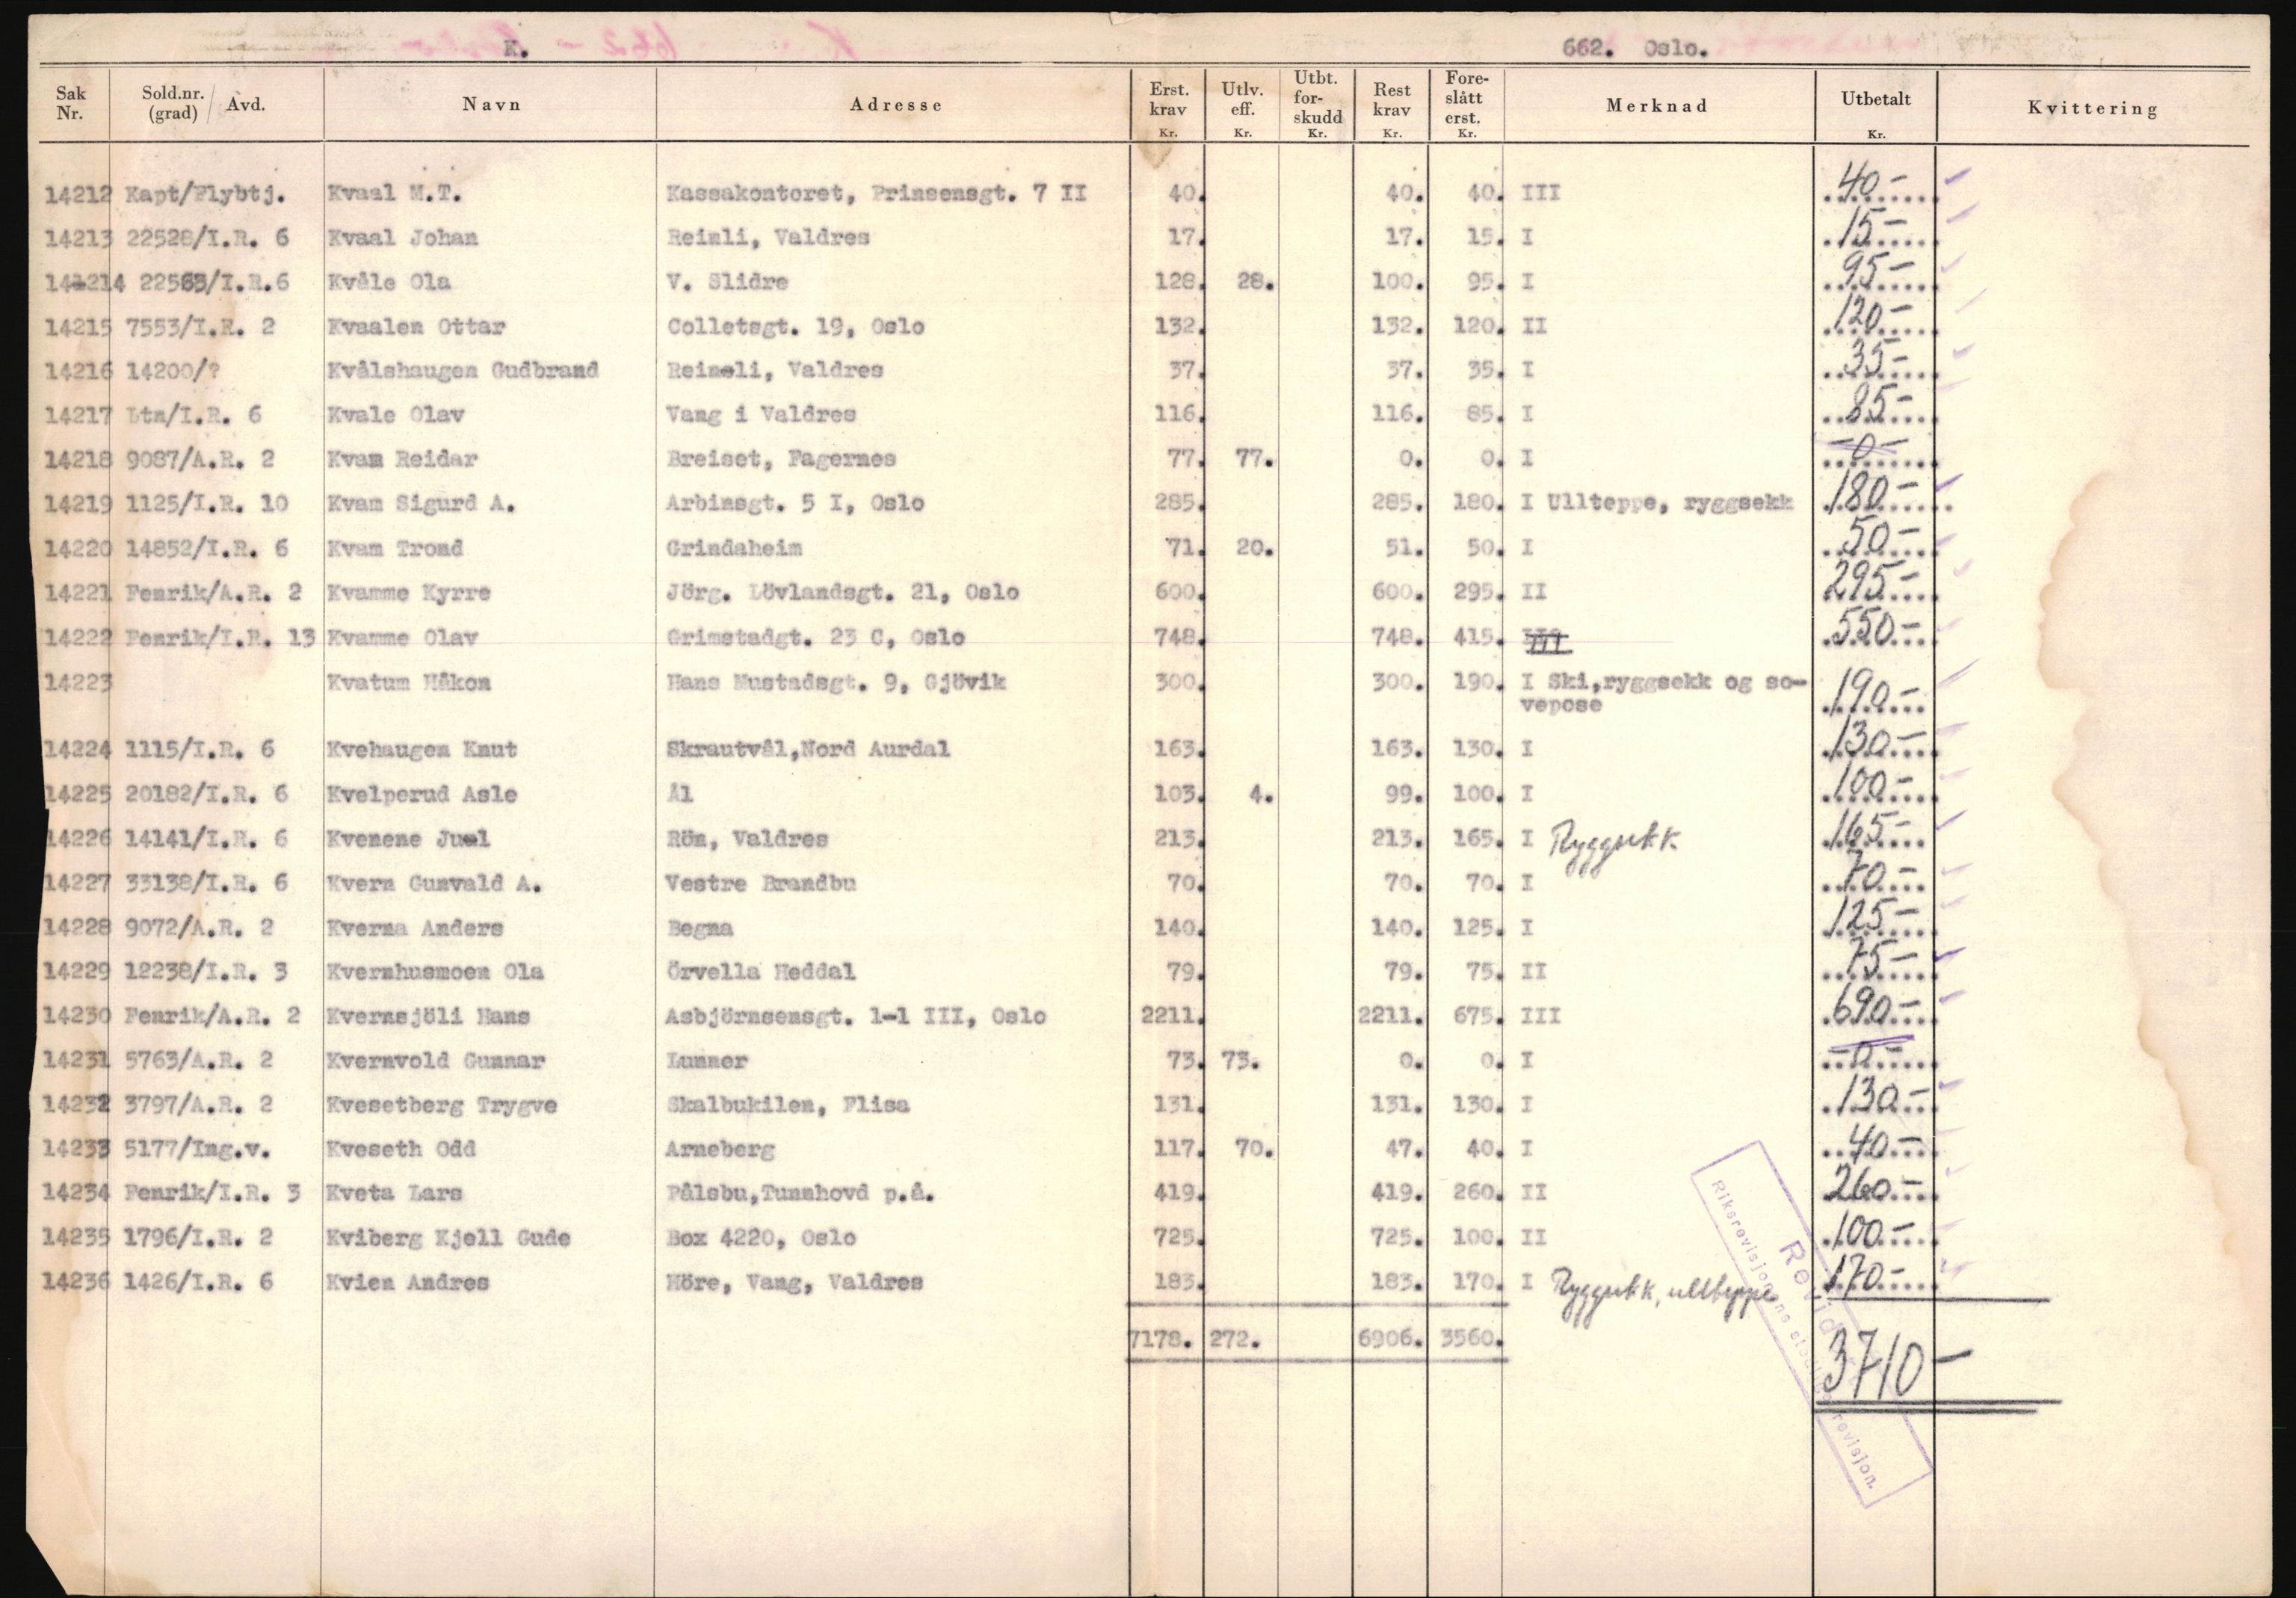 K. 662. Oslo.
Sak Nr. Sold.nr. (grad) / Avd. Navn Adresse Erst. krav Kr. Utlv. eff. Kr. Utbt. for-skudd Kr. Rest krav Kr. Fore-slått erst. Kr. Merknad Utbetalt Kr. Kvittering
14212 Kapt/Flybtj. Kvaal M.T. Kassakontoret, Prinsensgt. 7 II 40. 40. 40. III 40-
14213 22528/I.R. 6 Kvaal Johan Reinli, Valdres 17. 17. 15. I 15-
14214 22563/I.R.6 Kvåle Ola V. Slidre 128. 28. 100. 95. I 95-
14215 7553/I.R. 2 Kvaalen Ottar Colletsgt. 19, Oslo 132. 132. 120. II 120-
14216 14200/? Kvålshaugen Gudbrand Reinli, Valdres 37. 37. 35. I 35-
14217 Ltn/I.R. 6 Kvale Olav Vang i Valdres 116. 116. 85. I 85-
14218 9087/A.R. 2 Kvam Reidar Breiset, Fagernes 77. 77. 0. 0. I -0-
14219 1125/I.R. 10 Kvam Sigurd A. Arbinsgt. 5 I, Oslo 285. 285. 180. I Ullteppe, ryggsekk 180-
14220 14852/I.R. 6 Kvam Trond Grindaheim 71. 20. 51. 50. I 50-
14221 Fenrik/A.R. 2 Kvamme Kyrre Jörg. Lövlandsgt. 21, Oslo 600. 600. 295. II 295-
14222 Fenrik/I.R. 13 Kvamme Olav Grimstadgt. 23 C, Oslo 748. 748. 415. 550-
14223 Kvatum Håkon Hans Mustadsgt. 9, Gjövik 300. 300. 190. I Ski,ryggsekk og so-
vepose 190-
14224 1115/I.R. 6 Kvehaugen Knut Skrautvål,Nord Aurdal 163. 163. 130. I 130-
14225 20182/I.R. 6 Kvelperud Asle Ål 103. 4. 99. 100. I 100-
14226 14141/I.R. 6 Kvenene Juel Rön, Valdres 213. 213. 165. I Ryggsekk 165-
14227 33138/I.R. 6 Kvern Gunvald A. Vestre Brandbu 70. 70. 70. I 70-
14228 9072/A.R. 2 Kverna Anders Begna 140. 140. 125. I 125-
14229 12238/I.R. 3 Kvernhusmoen Ola Örvella Heddal 79. 79. 75. II 75-
14230 Fenrik/A.R. 2 Kvernsjöli Hans Asbjörnsensgt. 1-1 III, Oslo 2211. 2211. 675. III 690-
14231 5763/A.R. 2 Kvernvold Gunnar Lunner 73. 73. 0. 0. I -0-
14232 3797/A.R. 2 Kvesetberg Trygve Skalbukilen, Flisa 131. 131. 130. I 130-
14233 5177/Ing.v. Kveseth Odd Arneberg 117. 70. 47. 40. I 40-
14234 Fenrik/I.R. 3 Kveta Lars Pålsbu,Tunnhovd p.å. 419. 419. 260. II 260-
14235 1796/I.R. 2 Kviberg Kjell Gude Box 4220, Oslo 725. 725. 100. II 100-
14236 1426/I.R. 6 Kvien Andres Höre, Vang, Valdres 183. 183. 170. I Ryggsekk, ullteppe 170-
7178. 272. 6906. 3560. 3710-
Riksrevisjonens stedlige revisjon.